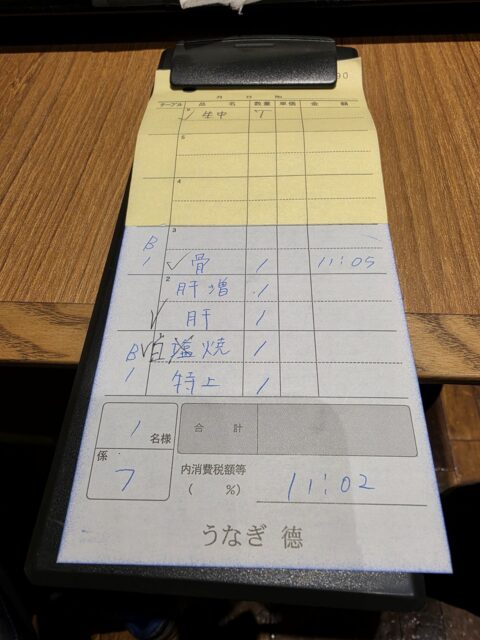 90
月 日 No
テーブル 品 名 数量 単価 金 額
6 ✓ 生中 1
5
4
3
B1 ✓ 骨 1 11:05
2 肝増 1
✓ 肝 1
B1 ✓ 白焼 1
特上 1
1 名様
合 計
係
フ
内消費税額等
( %) 11:02
うなぎ 徳